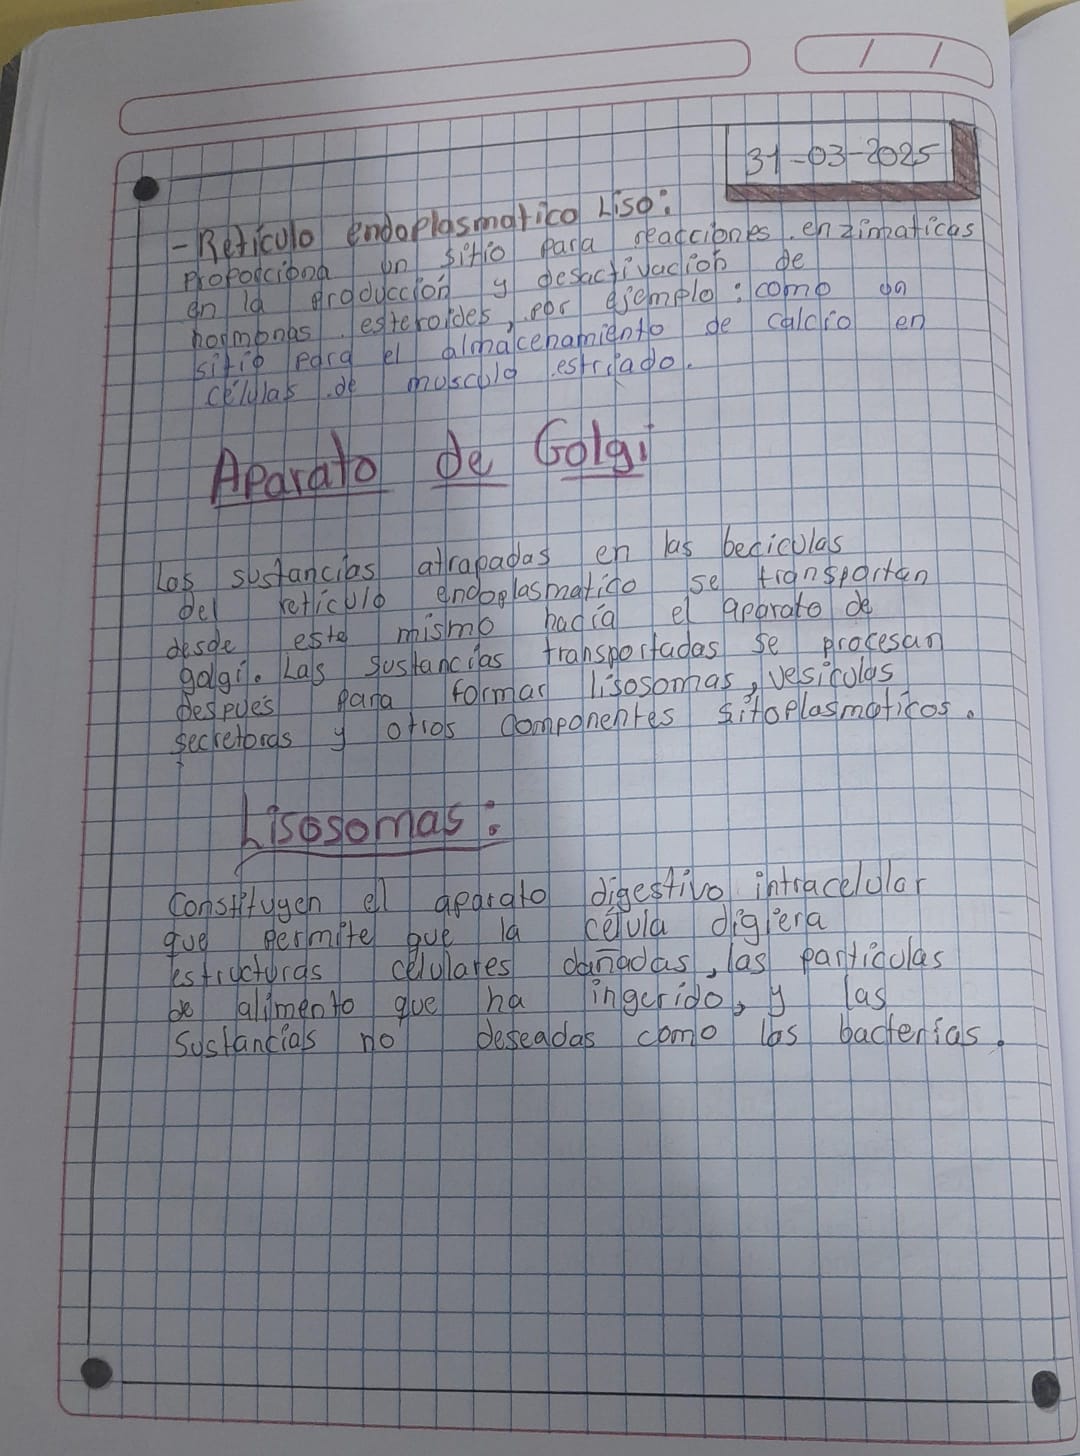 / /
31-03-2025
- Reticulo endoplasmatico Liso:
Proporciona un sitio para reacciones enzimaticas
en la producción y desactivación de
hormonas esteroides, por ejemplo: como un
sitio para el almacenamiento de calcio en
células de musculo estriado.
Aparato de Golgi
Las sustancias atrapadas en las beciculas
del reticulo endoplasmatico se transportan
desde este mismo hacia el aparato de
golgi. Las sustancias transportadas se procesan
Después para formar lisosomas, vesiculas
secretoras y otros componentes sitoplasmaticos.
Lisosomas:
Constituyen el aparato digestivo intracelular
que permite que la célula digiera
estructuras celulares dañadas, las particulas
de alimento que ha ingerido, y las
Sustancias no deseadas como las bacterias.